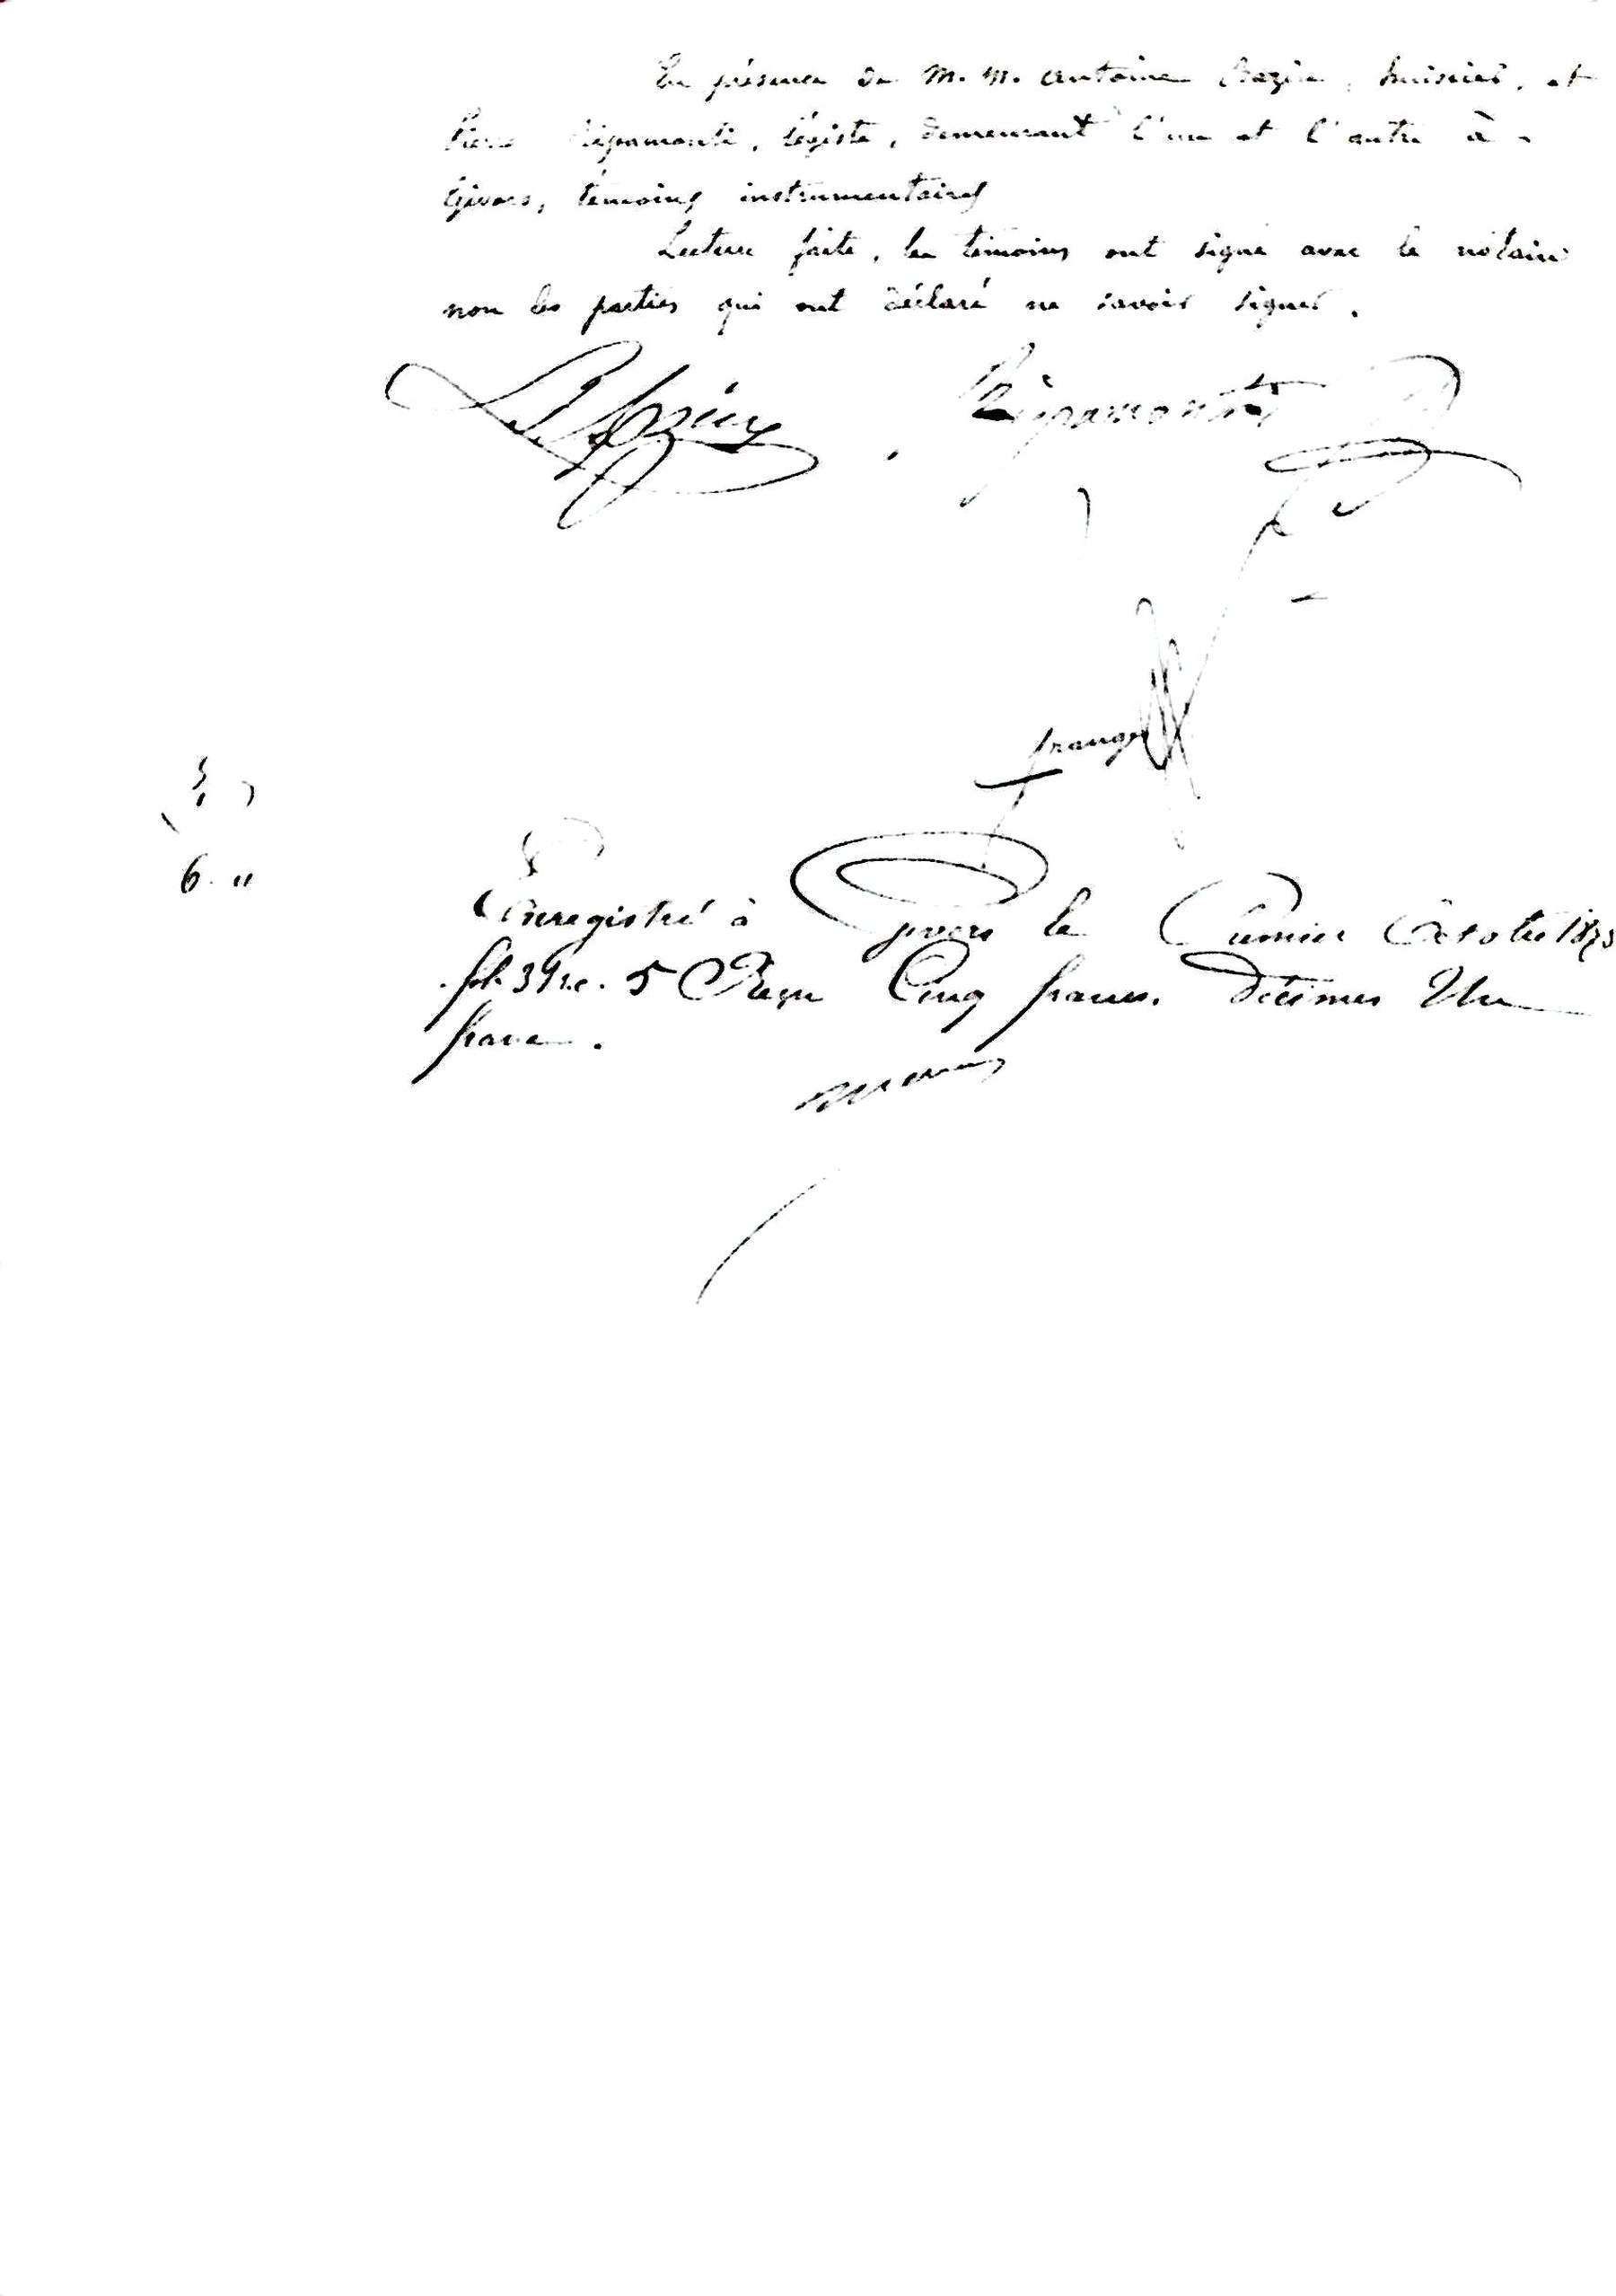 En présence de M. M. Antoine Bazin, huissier, et
Pierre Répamonti, légiste, demeurant l'un et l'autre à
Givors, témoins instrumentaires
Lecture faite, les témoins ont signé avec le notaire
non les parties qui ont déclaré ne savoir signer.
Répamonti
6. "
Enregistré à Givors le Premier Octobre
5 Reçu Cinq francs. Décimes Un
franc.